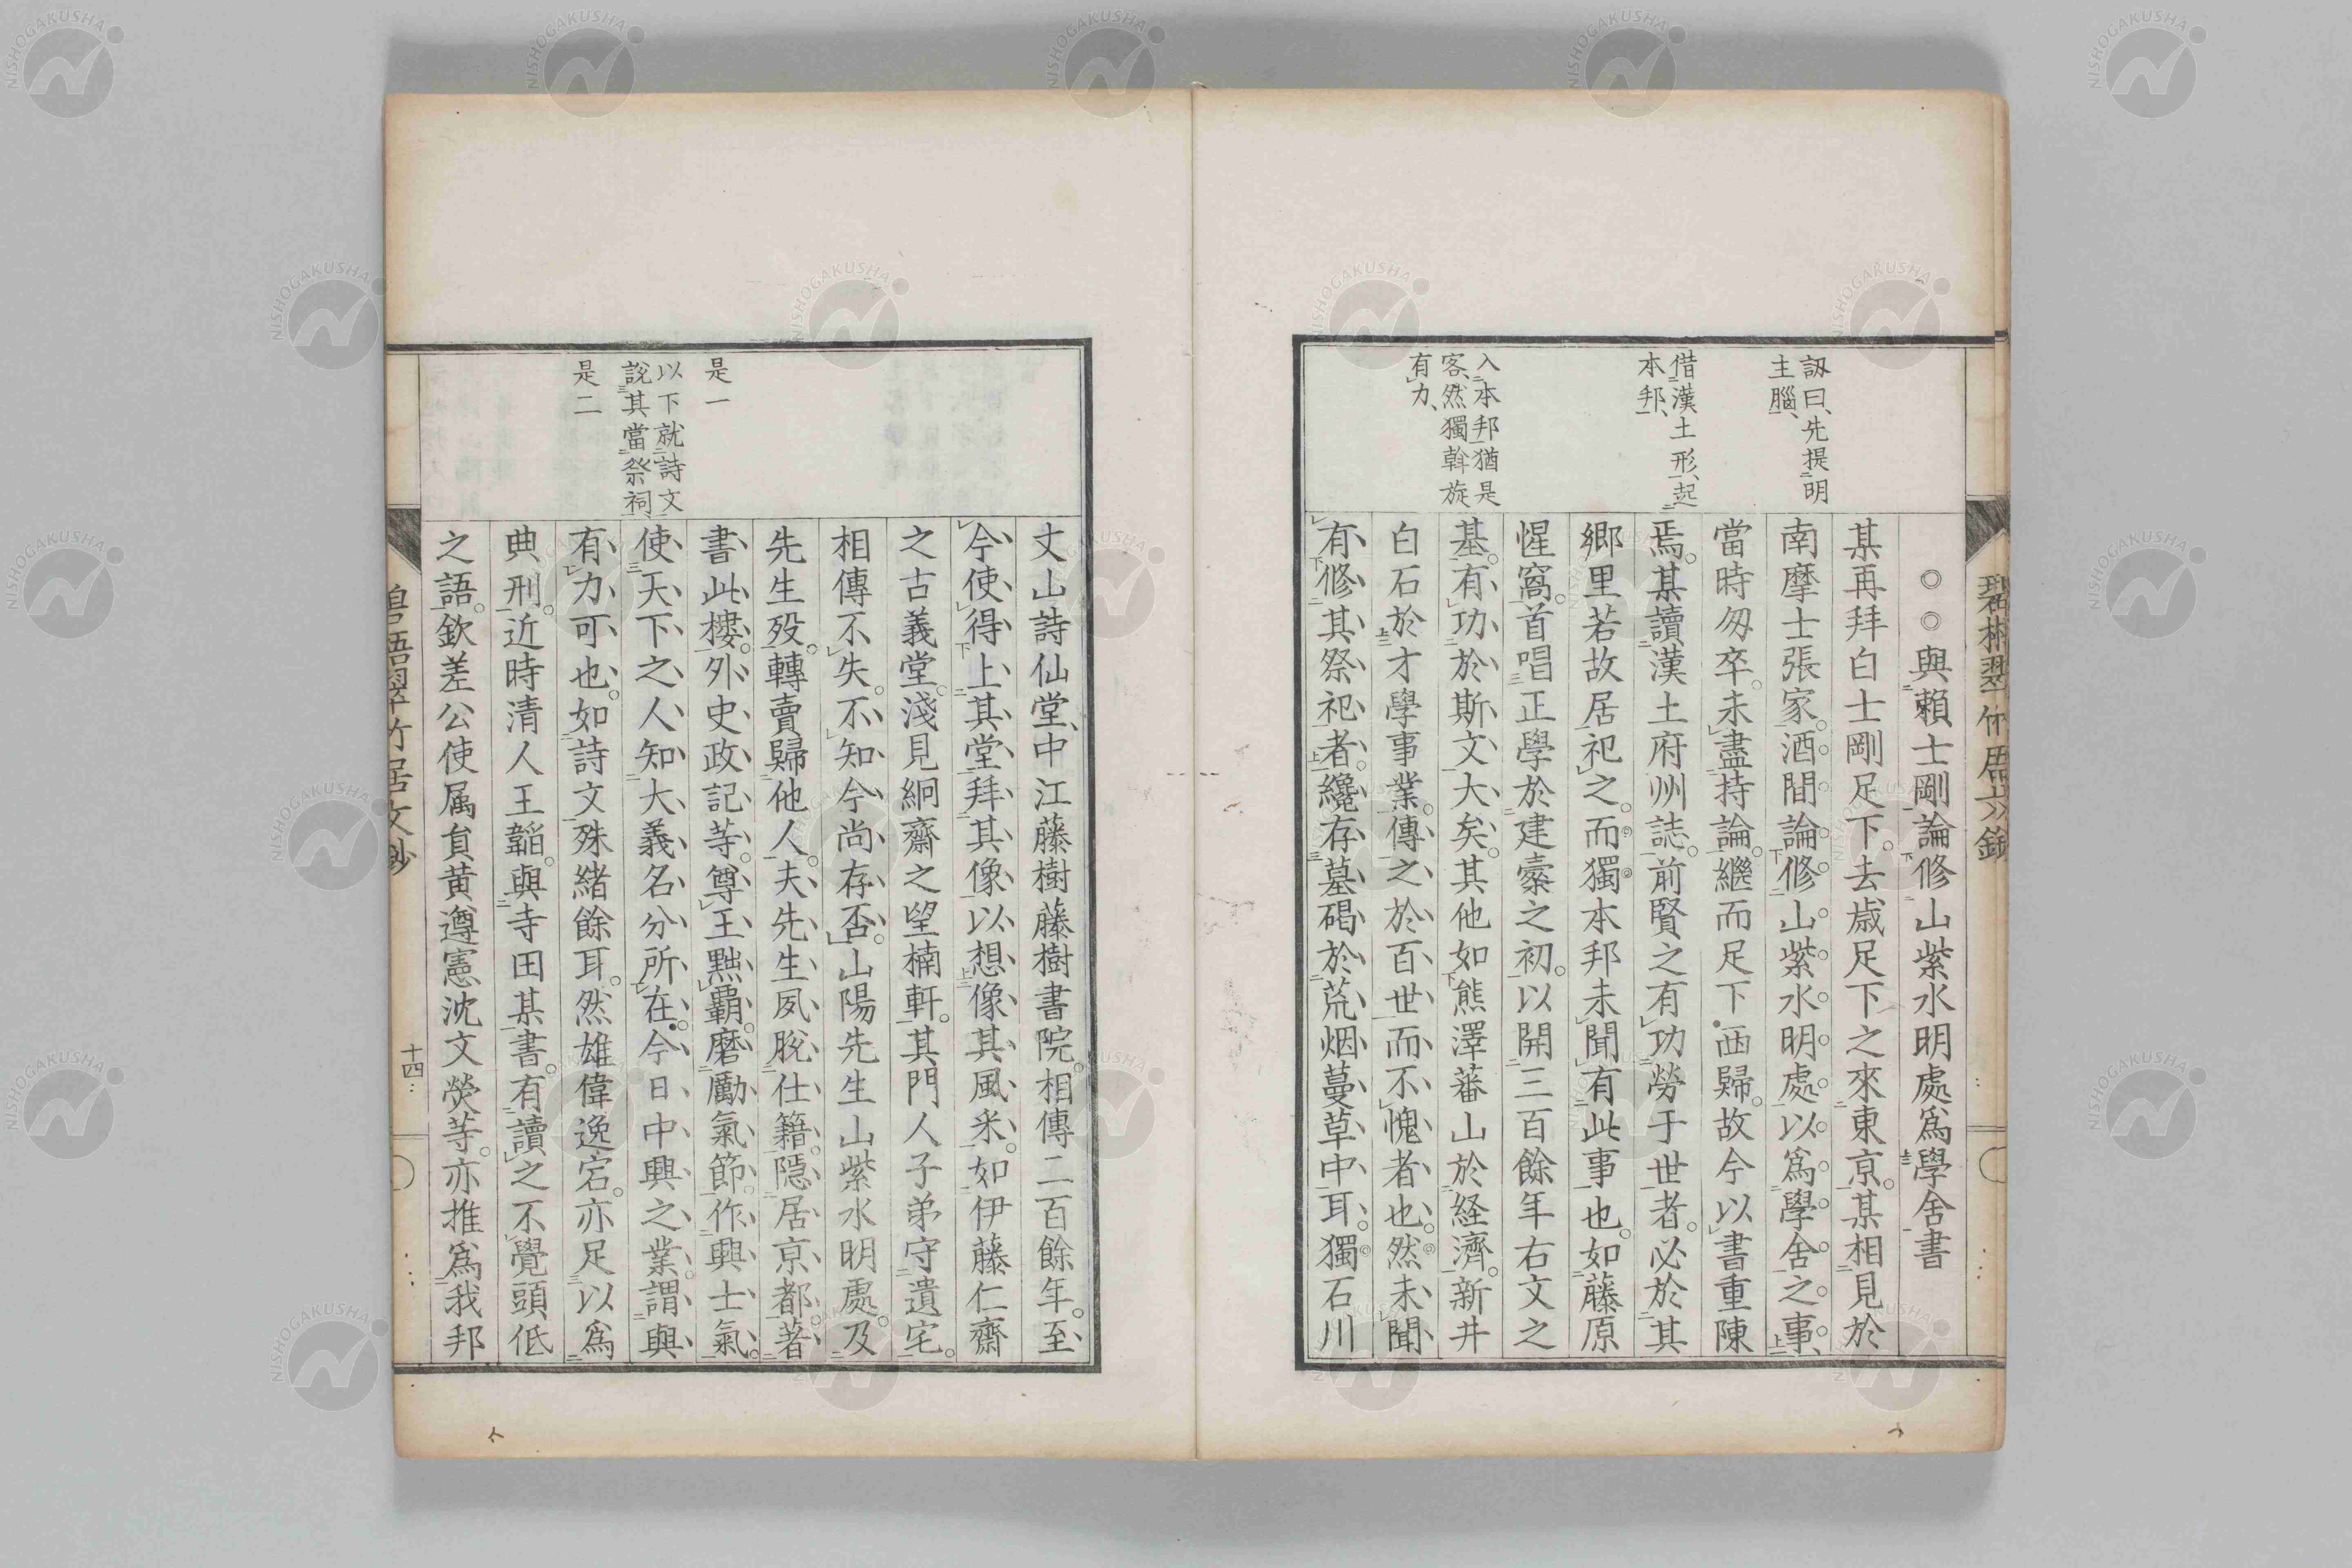 與賴士剛論修山紫水明處爲學舍書
某再拜白士剛足下去歲足下之來東京某相見於
南摩士張家酒間論修山紫水明處以爲學舍之事
當時匆卒未盡持論繼而足下西歸故今以書重陳
焉某讀漢土府州誌前賢之有功勞于世者必於其
鄉里若故居祀之而獨本邦未聞有此事也如藤原
惺窩首唱正學於建櫜之初以開三百餘年右文之
基有功於斯文大矣其他如熊澤蕃山於経濟新井
白石於才學事業傳之於百世而不愧者也然未聞
有修其祭祀者纔存墓碣於荒烟蔓草中耳獨石川
訒曰先提明
主腦
借漢土形起
本邦
入本邦猶是
客然獨斡旋
有力
丈山詩仙堂中江藤樹藤樹書院相傳二百餘年至
今使得上其堂拜其像以想像其風采如伊藤仁齋
之古義堂淺見絅齋之望楠軒其門人子弟守遺宅
相傳不失不知今尚存否山陽先生山紫水明處及
先生歿轉賣歸他人夫先生夙脫仕籍隱居京都著
書此樓外史政記等尊王黜覇磨勵氣節作興士氣
使天下之人知大義名分所在今日中興之業謂與
有力可也如詩文殊緒餘耳然雄偉逸宕亦足以爲
典刑近時清人王韜與寺田某書有讀之不覺頭低
之語欽差公使属貟黄遵憲沈文熒等亦推爲我邦
是一
以下就詩文
說其當祭祠
是二
十四